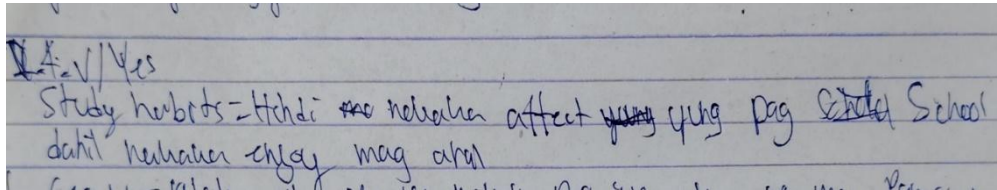 4. ✓/ Yes
Study habits = Hindi nakaka affect yung pag School
dahil nakaka enjoy mag aral